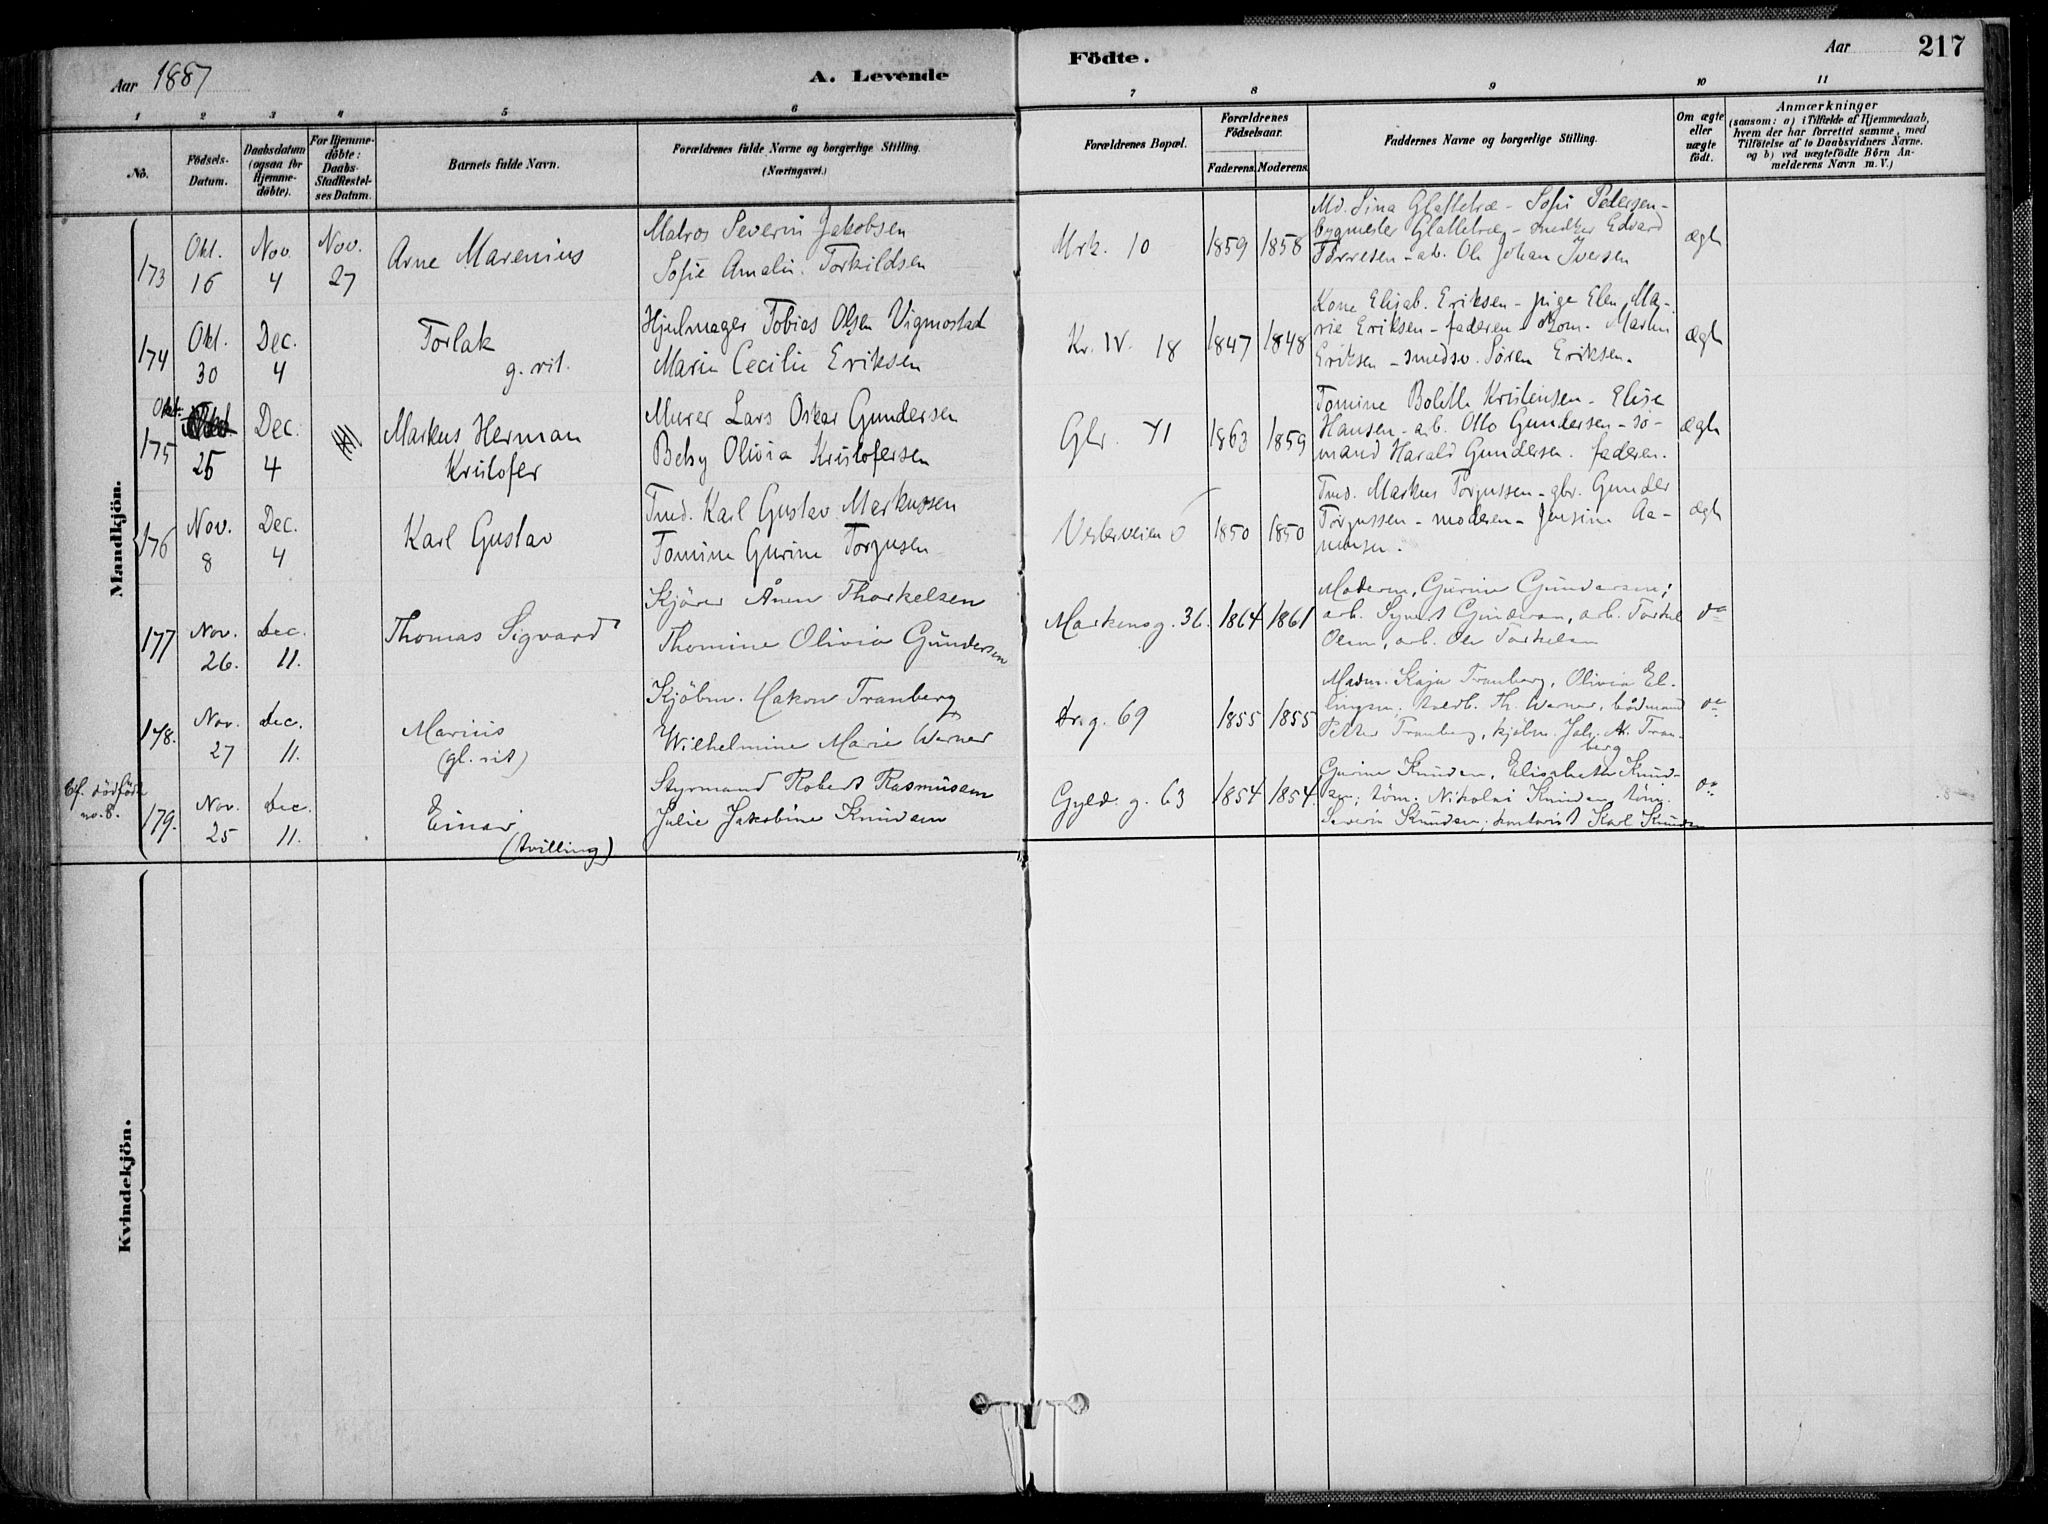 Aar 1887
A. Levende
Födte.
Aar
217
1 2 3 4 5 6 7 8 9 10 11
No.
Födsels-
Datum.
Daabsdatum
(ogsaa for
Hjemme-
döbte).
For Hjemme-
döbte:
Daabs-
Stadfæstel-
ses Datum.
Barnets fulde Navn.
Forældrenes fulde Navne og borgerlige Stilling.
(Næringsvei.)
Forældrenes Bopæl.
Forældrenes
Födselsaar.
Faderens. Moderens.
Faddernes Navne og borgerlige Stilling.
Om ægte
eller
uægte
födt.
Anmærkninger
(saasom: a) i Tilfælde af Hjemmedaab,
hvem der har forrettet samme, med
Tilföielse af to Daabsvidners Navne.
og b) ved uægtefödte Börn An-
melderens Navn m. V.)
Mandkjön.
173
Okt.
16
Nov.
4
Nov.
27
Arne Marenius
Matros Severin Jakobsen
Sofie Amalie Torkildsen
Mrk. 10
1859 1858
Md. Lina Glattetræ - Sofie Petersen -
bygmester Glattetræ - snedker Edvard
Torresen - arb. Ole Johan Iversen
ægte
174
Okt.
30
Dec.
4
Torlak
g. rit.
Hjulmager Tobias Olsen Vigmostad
Marie Cecilie Eriksen
Kr. IV. 18
1847 1848
Kone Elisab. Eriksen - pige Elen Ma-
rie Eriksen - faderen - skom. Martin
Eriksen - smedsv. Sören Eriksen.
ægte
175
Okt.
25
Dec.
4
Markus Herman
Kristofer
Murer Lars Oskar Gundersen
Betsy Olivia Kristofersen
Glr. 41
1863 1859
Tomine Bolette Kristensen - Elise
Hansen - arb. Otto Gundersen - sö-
mand Harald Gundersen. faderen.
ægte
176
Nov.
8
Dec.
4
Karl Gustav
Tmd. Karl Gustav Markussen
Tomine Gurine Torjusen
Vesterveien 6
1850 1850
Tmd. Markus Torjussen - gbr. Gunder
Torjussen - moderen - Jensine Aa-
nensen.
ægte
177
Nov.
26.
Dec.
11.
Thomas Sigvard
Kjörer Ånen Thorkelsen
Thomine Olivia Gundersen
Markensg. 36.
1864 1861
Moderen, Gurine Gundersen;
arb. Syvert Gundersen, arb. Torkel
Olsen, arb. Ole Torkelsen
do
178.
Nov.
27
Dec.
11.
Marius
(gl. rit)
Kjöbm. Hakon Tranberg
Wilhelmine Marie Werner
Dr. g. 69
1855 1855
Madm. Kaja Tranberg, Olivia El-
lingsen, Th. Werner,
Petter Tranberg, kjöbm. Joh. M. Tran-
berg
do
Cf. dödfödte
no. 8.
179.
Nov.
25
Dec.
11.
Einar
(tvilling)
Styrmand Robert Rasmussen
Julie Jakobine Knudsen
Gyld. g. 63
1854 1854.
Gurine Knudsen, Elisabeth Knud-
sen; töm. Nikolai Knudsen, töm.
Severin Knudsen, kontorist Karl Knudsen
do
Kvindekjön.